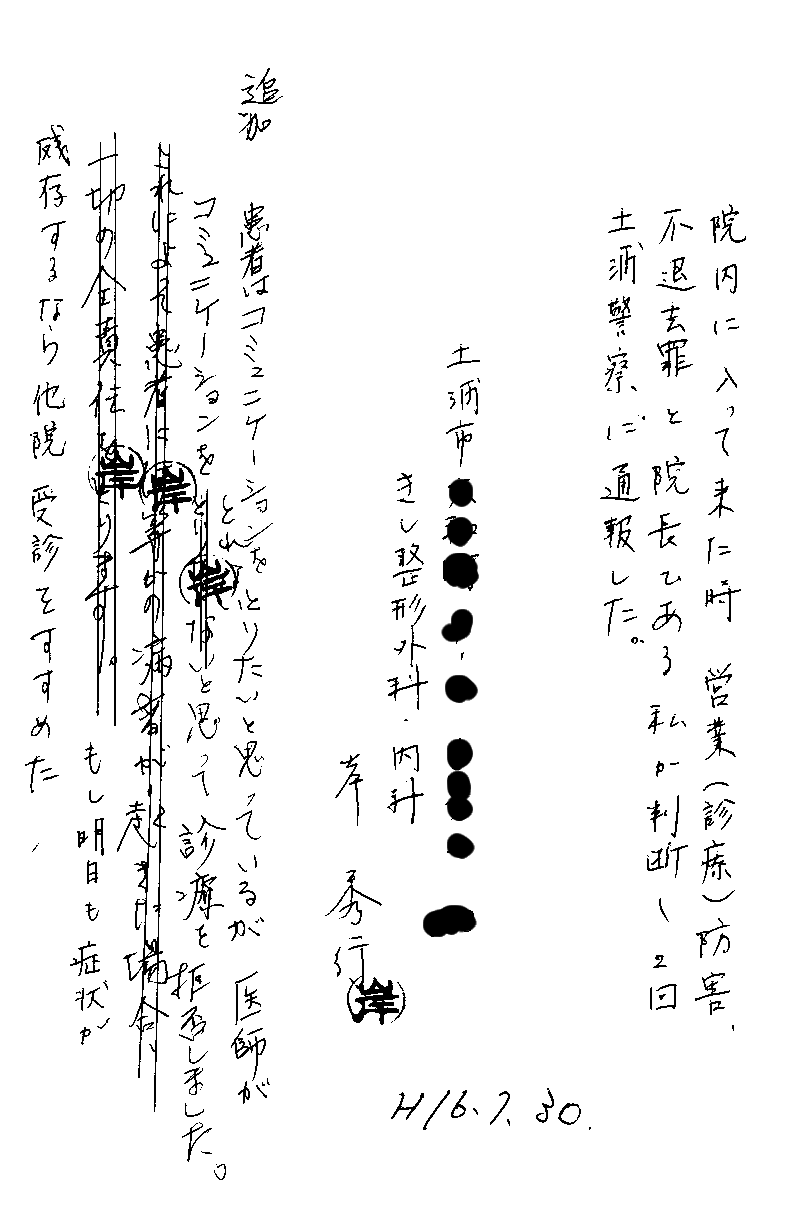 院内に入って来た時 営業(診療)防害、
不退去罪と院長である私が判断し2回
土浦警察に通報した。
土浦市
きし整形外科・内科
岸 秀行 岸
H16.7.30.
追加
患者はコミュニケーションをとりたいと思っているが 医師が
コミュニケーションをとりないと思って診療を拒否しました。
とれ
岸
これによる患者に の病者が起きた場合、
岸
一切の全責任をとります。 もし明日も症状が
岸
残存するなら他院受診をすすめた、